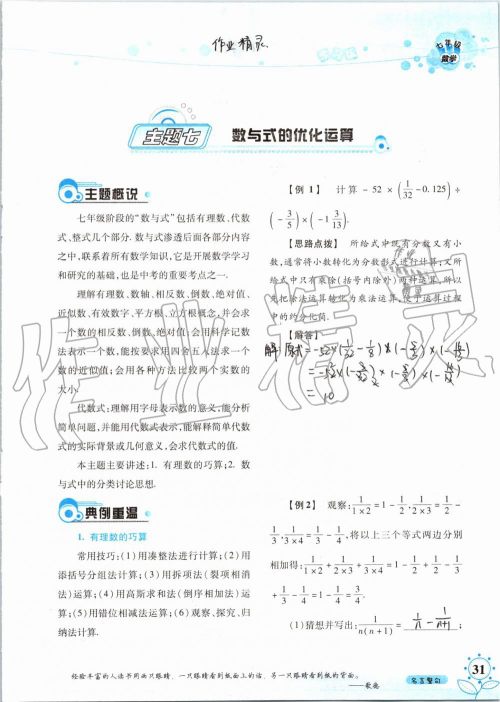 作业精灵
七年级
数学
主题七 数与式的优化运算
主题概说
七年级阶段的“数与式”包括有理数、代数
式、整式几个部分.数与式渗透后面各部分内容
之中,联系着所有数学知识,它是开展数学学习
和研究的基础,也是中考的重要考点之一.
理解有理数、数轴、相反数、倒数、绝对值、
近似数、有效数字、平方根、立方根概念,并会求
一个数的相反数、倒数、绝对值;会用科学记数
法表示一个数,能按要求用四舍五入法求一个
数的近似值;会用各种方法比较两个实数的
大小.
代数式:理解用字母表示数的意义,能分析
简单问题,并能用代数式表示,能解释简单代数
式的实际背景或几何意义,会求代数式的值.
本主题主要讲述:1. 有理数的巧算;2. 数
与式中的分类讨论思想.
典例重温
1. 有理数的巧算
常用技巧:(1)用凑整法进行计算;(2)用
添括号分组法计算;(3)用拆项法(裂项相消
法)运算;(4)用高斯求和法(倒序相加法)运
算;(5)用错位相减法运算;(6)观察、探究、归
纳法计算.
【例 1】 计算 -52×(1/32-0.125)÷
(-3/5)×(-1 3/13).
【思路点拨】 所给式中既有分数又有小
数,通常将小数转化为分数形式进行计算;又所
给式中只有乘除(括号内除外)两种运算,所以
先把除法运算转化为乘法运算,便于运算过程
中的约分化简.
【解答】
解:原式=-52×(1/32-1/8)×(-5/3)×(-16/13)
=-52×(-3/32)×(-5/3)×(-16/13)
=10
【例 2】 观察:1/(1×2)=1-1/2,1/(2×3)=1/2
-1/3,1/(3×4)=1/3-1/4,将以上三个等式两边分别
相加得:1/(1×2)+1/(2×3)+1/(3×4)=1-1/2+1/2-
1/3+1/3-1/4=1-1/4=3/4.
(1)猜想并写出:1/(n(n+1))=1/n-1/(n+1);
经验丰富的人读书用两只眼睛,一只眼睛看到纸面上的话,另一只眼睛看到纸的背面。
——歌德
名言警句
31
作业精灵